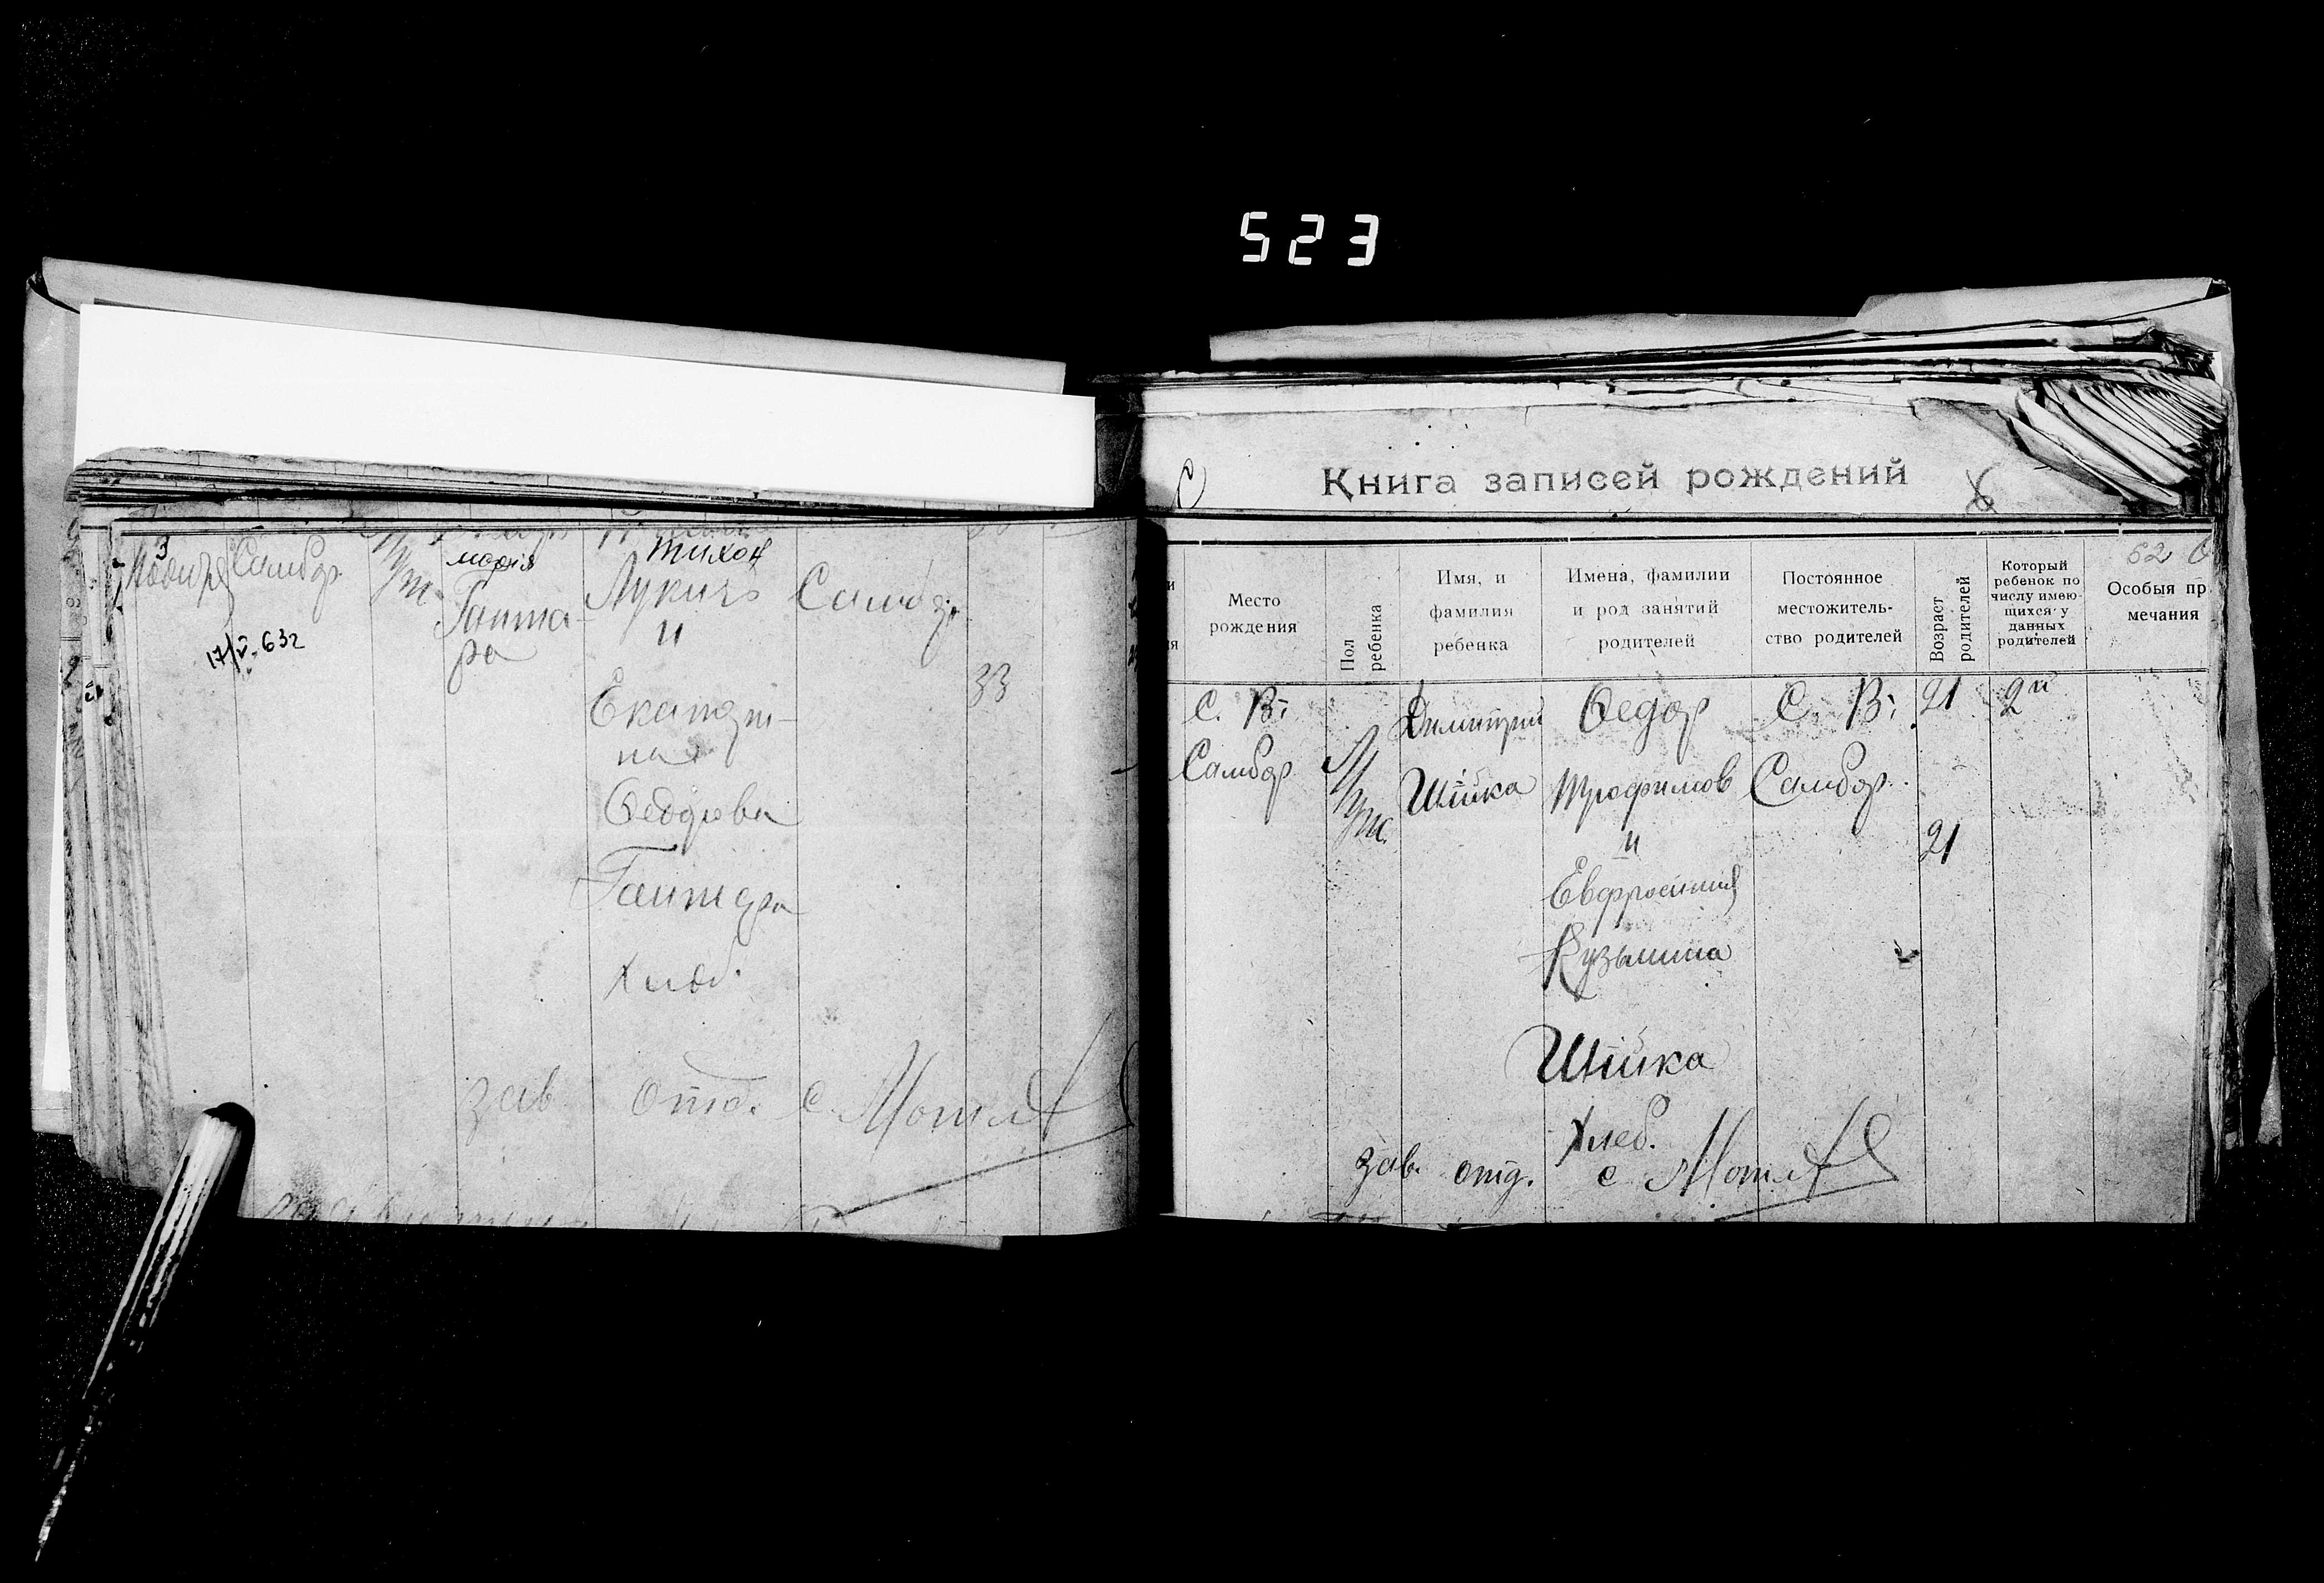 523
3
Самбор
Муж.
мария
Гантa-
ра
Тихон
Лукичъ
и
Самбор
17/V-63г
33
Екатери-
на
Федорова
Гантура
хлеб.
зав отд. С. Мотл
Книга записей рождений
52
Место
рождения
Пол
ребенка
Имя, и
фамилия
ребенка
Имена, фамилии
и род занятий
родителей
Постоянное
местожитель-
ство родителей
Возраст
родителей
Который
ребенок по
числу имею-
щихся у
данных
родителей
Особыя пр
мечания
С. В.
Самбор
Муж.
Димитрий
Шійка
Федор
Трофимов
и
Евфросиния
Кузьмина
Шійка
Хлеб.
С. В.
Самбор
21
21
2й
зав. отд. С. Мотл